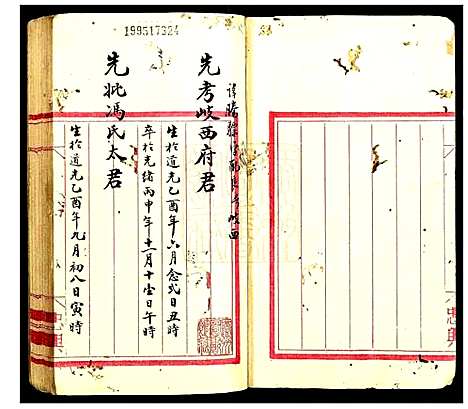 199517324
諱勝 岐西
先考岐西府君
生於道光乙酉年六月念弍日丑時
卒於光緒丙申年十一月十壹日午時
先妣馮氏太君
生於道光乙酉年九月初八日寅時
忠興